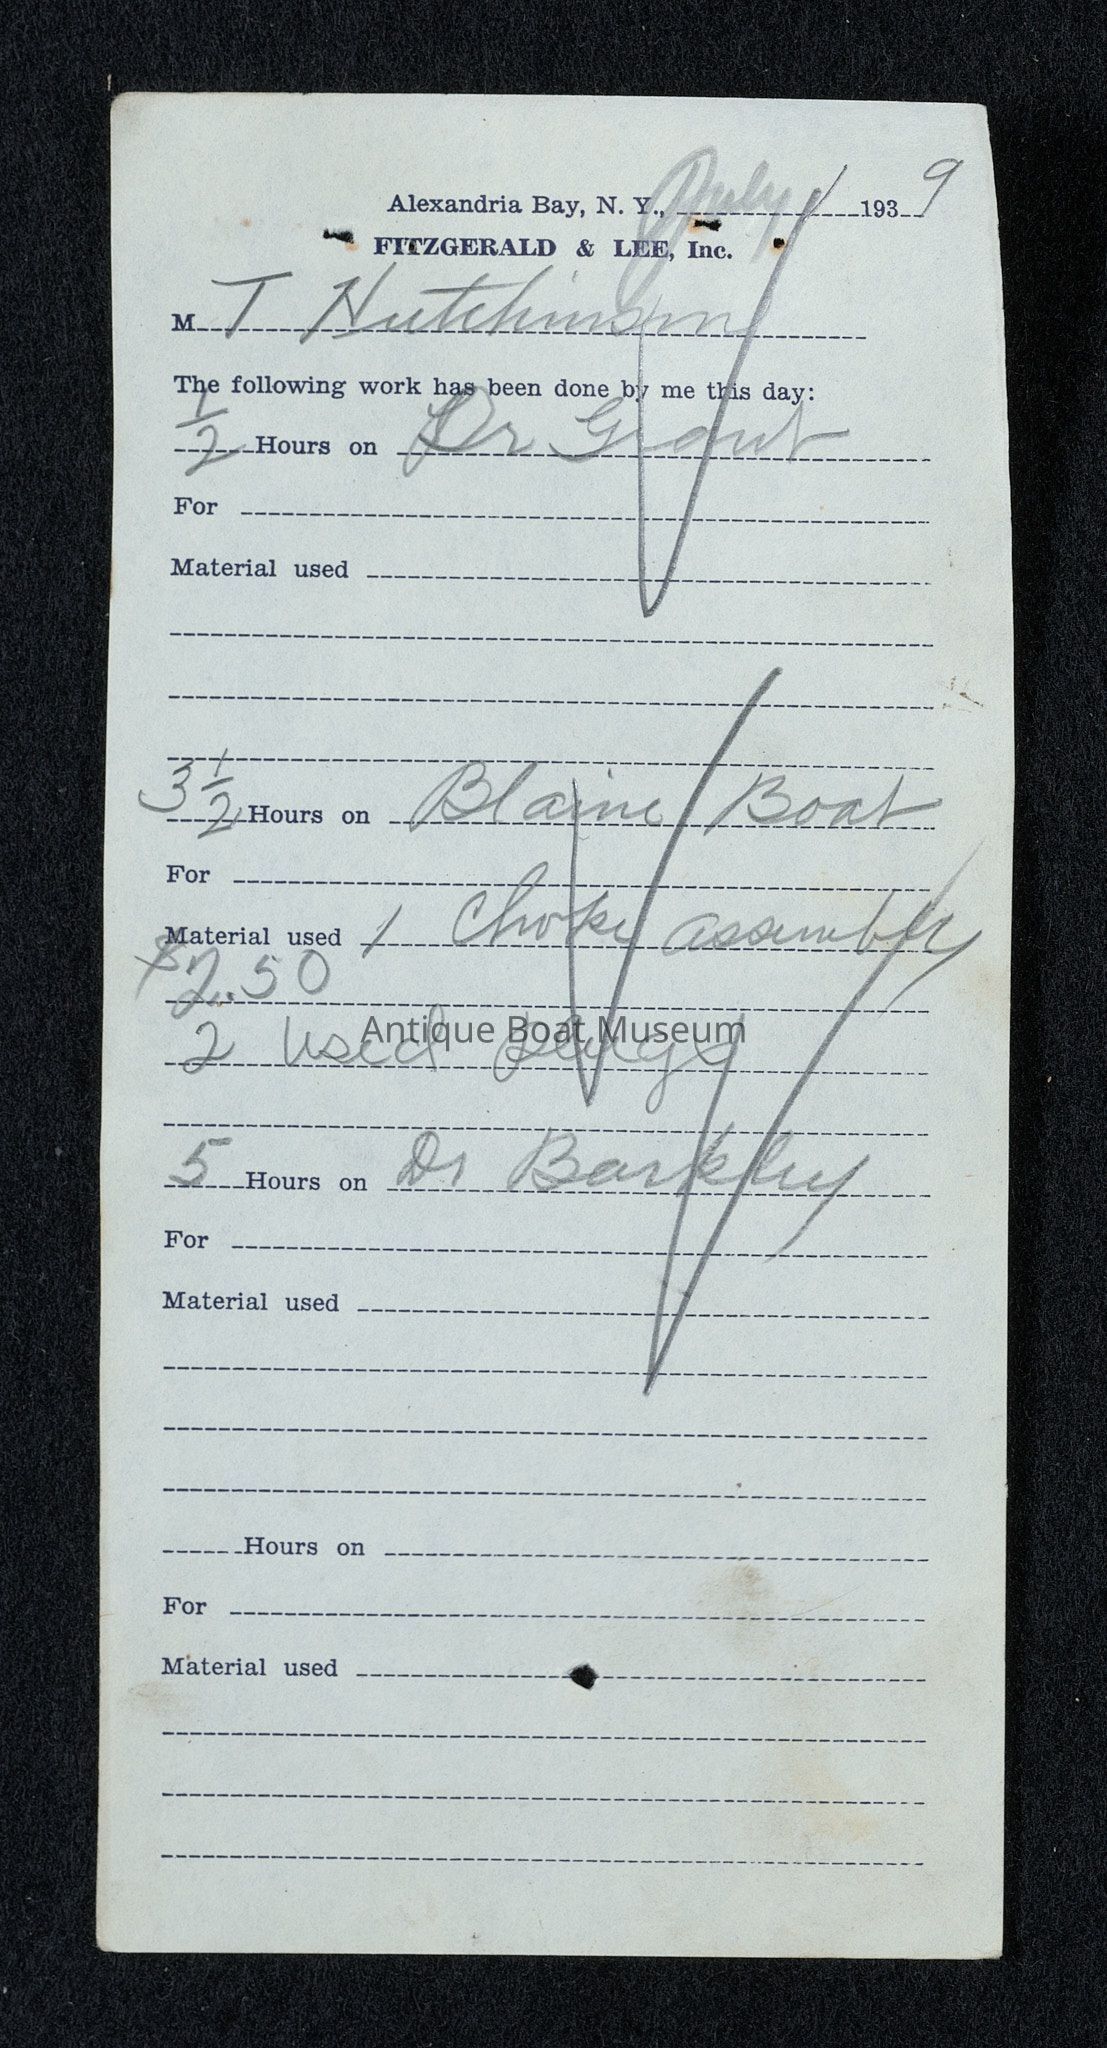 Alexandria Bay, N. Y., July 1 1939
FITZGERALD & LEE, Inc.
M T Hutchinson
The following work has been done by me this day:
1/2 Hours on Dr Grant
For
Material used
3 1/2 Hours on Blaine Boat
For
Material used 1 Choke assembly
$2.50
2 Used plugs
Antique Boat Museum
5 Hours on Dr Barkley
For
Material used
Hours on
For
Material used